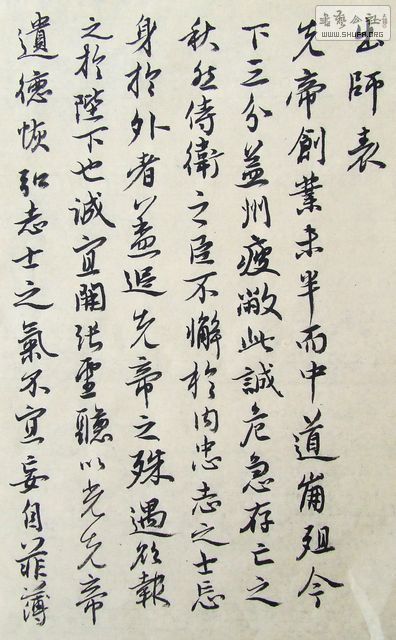 書藝公社
WWW.SHUFA.ORG
出師表
先帝創業未半而中道崩殂今
下三分益州疲敝此誠危急存亡之
秋然侍衛之臣不懈於内忠志之士忘
身於外者蓋追先帝之殊遇欲報
之於陛下也誠宜開張聖聽以光先帝
遺德恢弘志士之氣不宜妄自菲薄